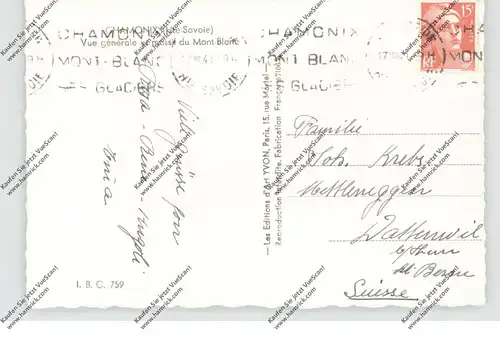 CHAMONIX (Hte Savoie)
Vue générale et massif du Mont-Blanc
CHAMONIX
MONT-BLANC
GLACIERS
CHAMONIX
MONT BLANC
GLACIERS
15F
RF
Vielegrüsse von
Papa
Irma
— Les Editions d'Art YVON, Paris, 15, rue Martel —
Reproduction interdite. Fabrication Française
Familie
Joh. Krebs
Mettleneggen
Wattenwil
b/Thun
Kt. Bern
Suisse
I. B. C. 759
Scannen Sie jetzt VueScan!
www.hamrick.com